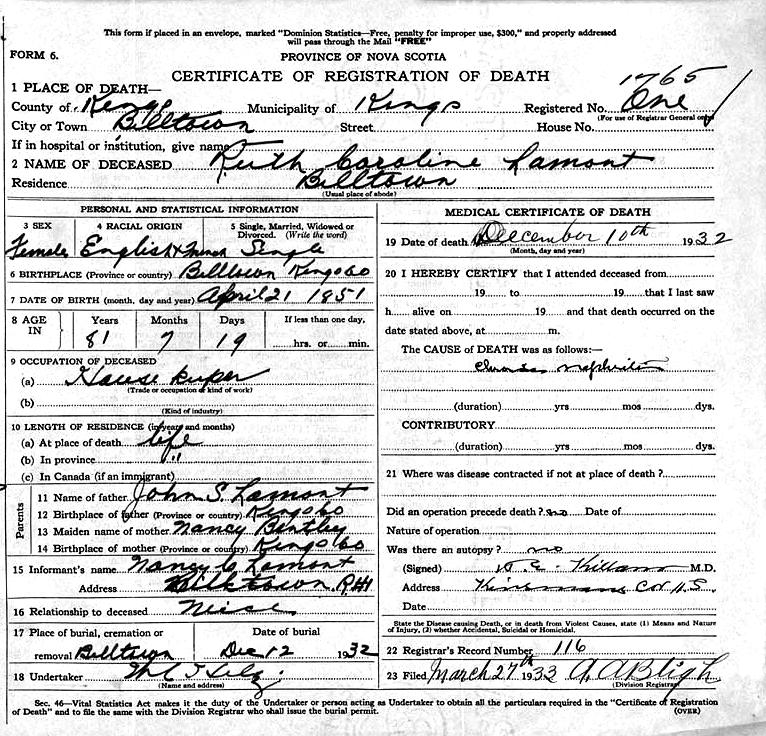 This form if placed in an envelope, marked "Dominion Statistics—Free, penalty for improper use, $300," and properly addressed
will pass through the Mail "FREE"
FORM 6.
PROVINCE OF NOVA SCOTIA
CERTIFICATE OF REGISTRATION OF DEATH
1765
1 PLACE OF DEATH—
County of Kings Municipality of Kings Registered No. One
(For use of Registrar General only)
City or Town Billtown Street House No.
If in hospital or institution, give name
2 NAME OF DECEASED Ruth Caroline Lamont
Residence Billtown
(Usual place of abode)
PERSONAL AND STATISTICAL INFORMATION
3 SEX 4 RACIAL ORIGIN 5 Single, Married, Widowed or Divorced. (Write the word)
Female English & French Single
6 BIRTHPLACE (Province or country) Billtown Kings Co
7 DATE OF BIRTH (month, day and year) April 21 1851
8 AGE IN Years Months Days If less than one day,
81 7 19 hrs. or min.
9 OCCUPATION OF DECEASED
(a) House keeper
(Trade or occupation or kind of work)
(b)
(Kind of industry)
10 LENGTH OF RESIDENCE (in years and months)
(a) At place of death life
(b) In province "
(c) In Canada (if an immigrant)
Parents
11 Name of father John S. Lamont
12 Birthplace of father (Province or country) Kings Co
13 Maiden name of mother Nancy Bentley
14 Birthplace of mother (Province or country) Kings Co
15 Informant's name Nancy C Lamont
Address Billtown
16 Relationship to deceased Niece
17 Place of burial, cremation or Date of burial
removal Billtown Dec 12 1932
18 Undertaker
(Name and address)
MEDICAL CERTIFICATE OF DEATH
19 Date of death December 10th 1932
(Month, day and year)
20 I HEREBY CERTIFY that I attended deceased from
19 to 19 that I last saw
h alive on 19 and that death occurred on the
date stated above, at m.
The CAUSE of DEATH was as follows:—
(duration) yrs mos dys.
CONTRIBUTORY
(duration) yrs mos dys.
21 Where was disease contracted if not at place of death ?
Did an operation precede death ? no Date of
Nature of operation
Was there an autopsy ? no
(Signed) M.D.
Address
Date
State the Disease causing Death, or in death from Violent Causes, state (1) Means and Nature
of Injury, (2) whether Accidental, Suicidal or Homicidal.
22 Registrar's Record Number 116
23 Filed March 27th 1933 A. A Bligh
(Division Registrar)
Sec. 46—Vital Statistics Act makes it the duty of the Undertaker or person acting as Undertaker to obtain all the particulars required in the "Certificate of Registration
of Death" and to file the same with the Division Registrar who shall issue the burial permit. (OVER)